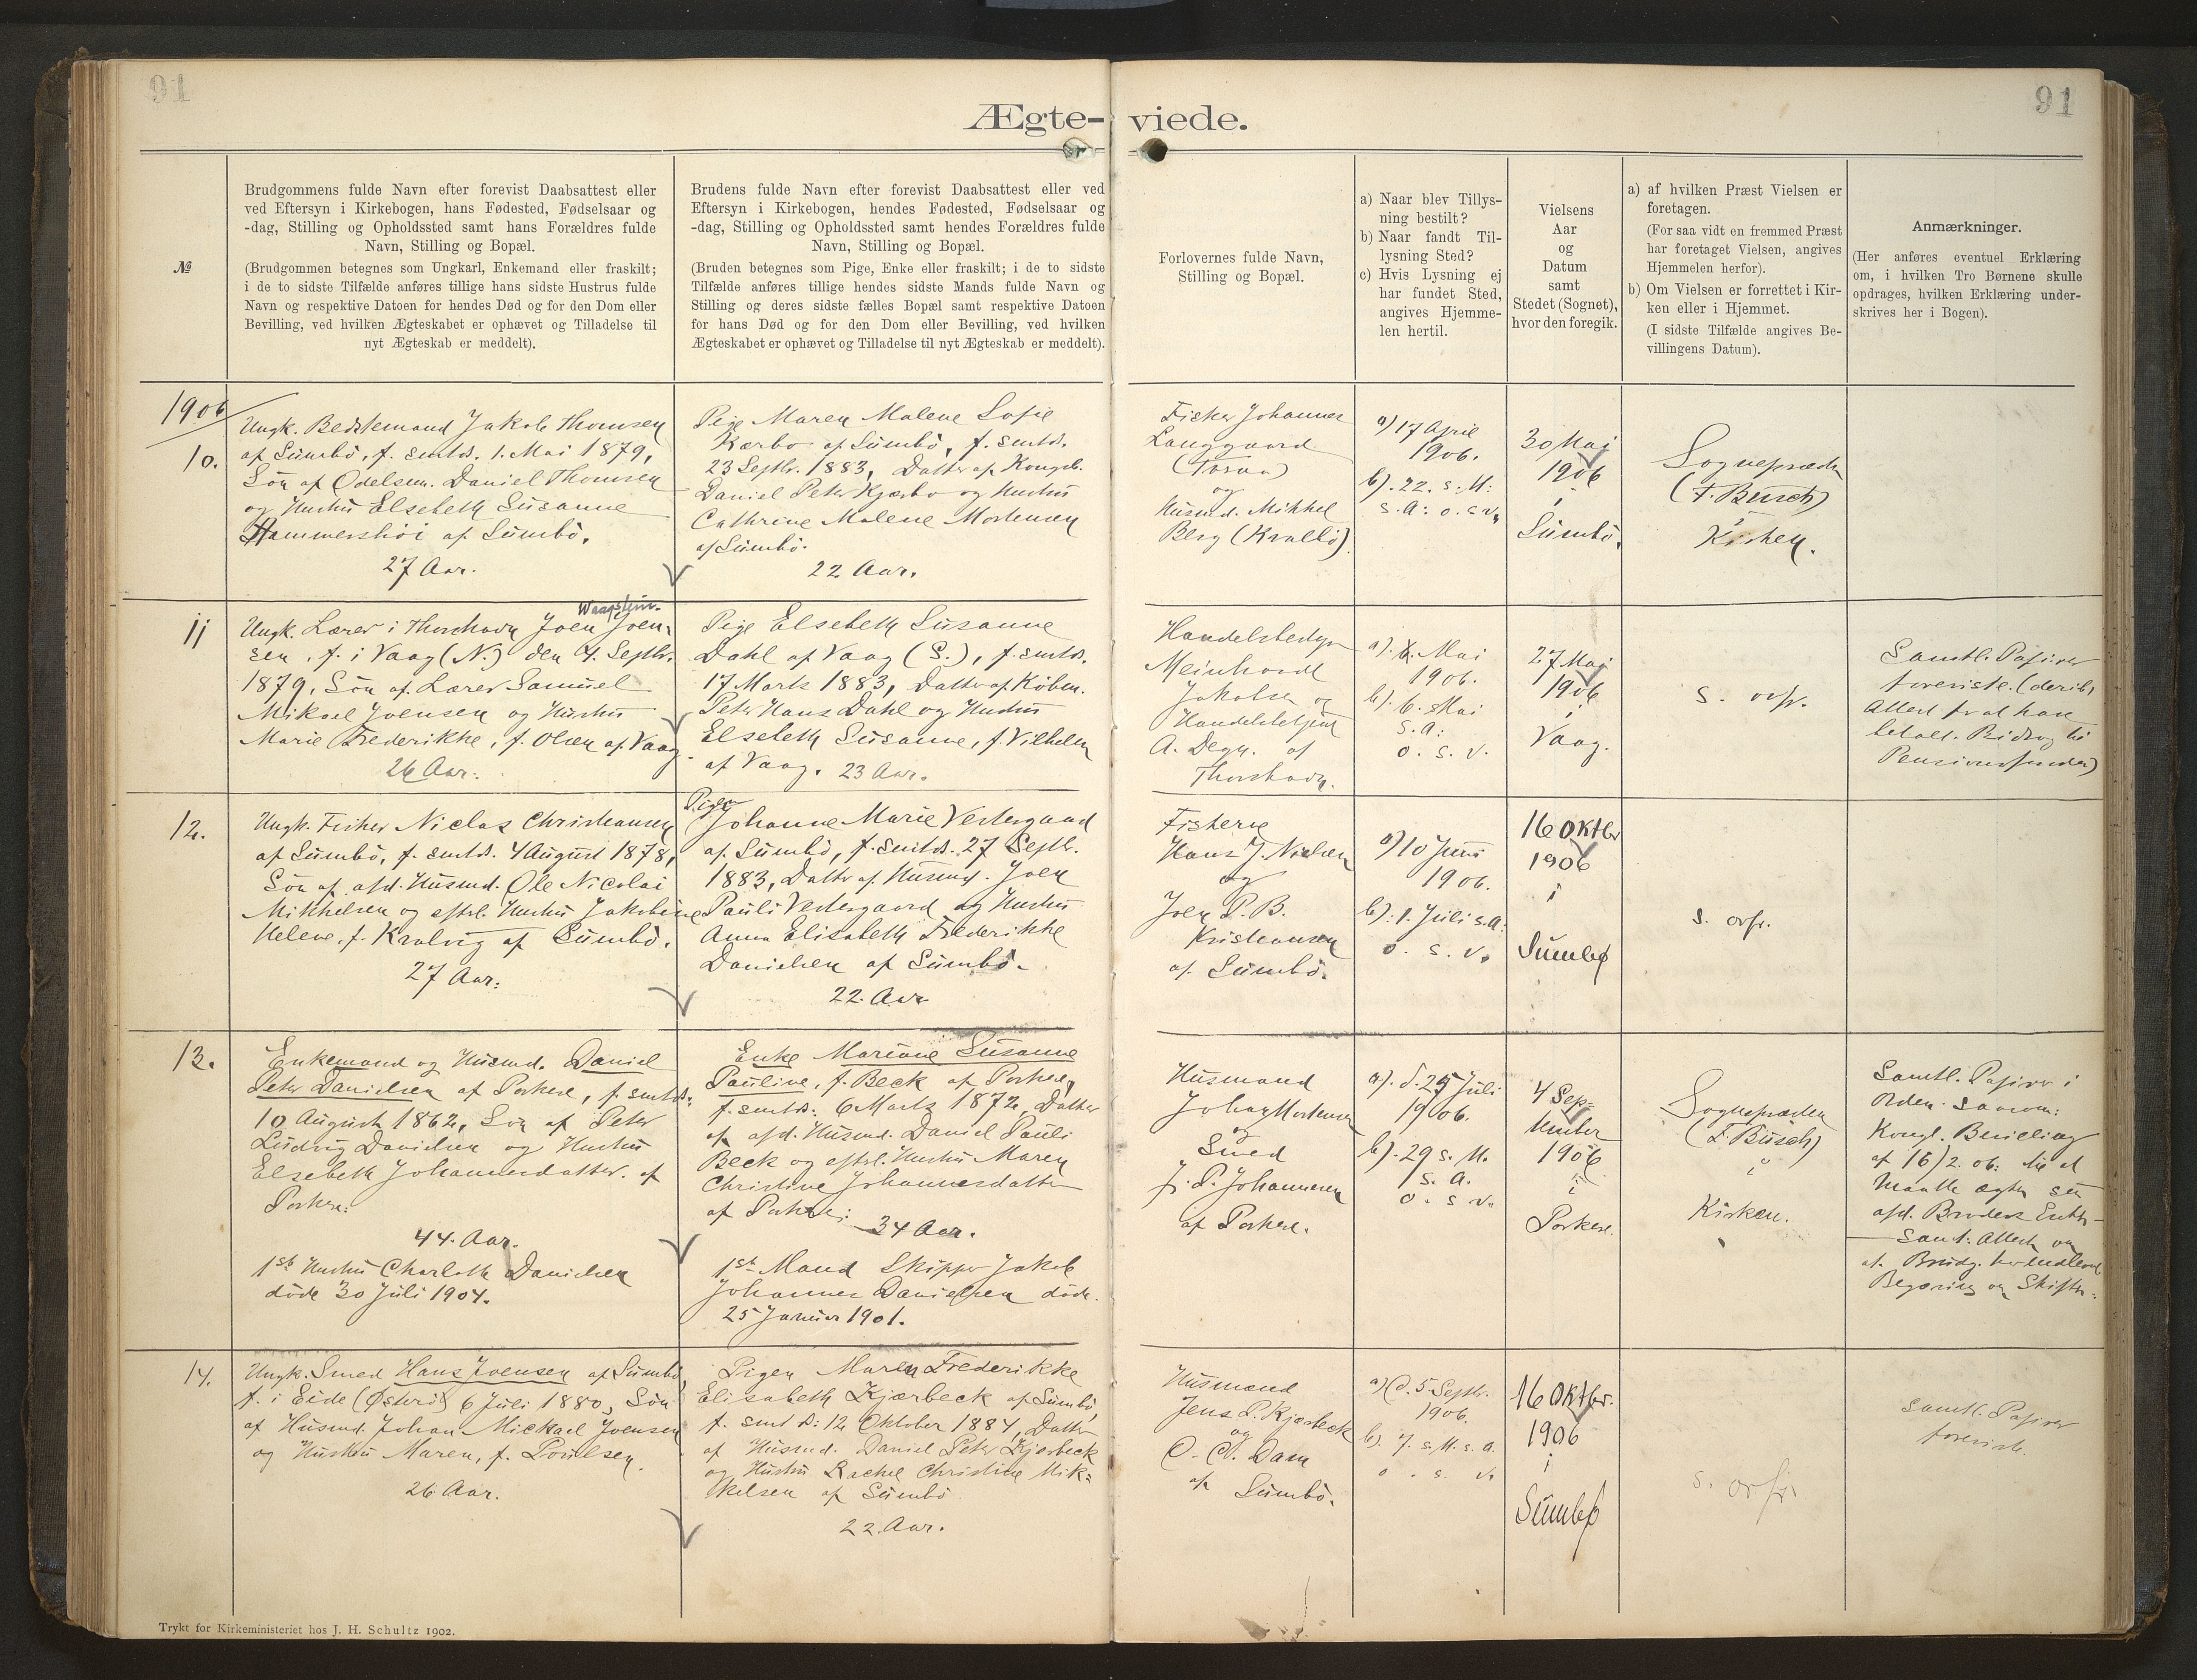 91
91
Ægte- viede.
№
Brudgommens fulde Navn efter forevist Daabsattest eller
ved Eftersyn i Kirkebogen, hans Fødested, Fødselsaar og
-dag, Stilling og Opholdssted samt hans Forældres fulde
Navn, Stilling og Bopæl.
(Brudgommen betegnes som Ungkarl, Enkemand eller fraskilt;
i de to sidste Tilfælde anføres tillige hans sidste Hustrus fulde
Navn og respektive Datoen for hendes Død og for den Dom eller
Bevilling, ved hvilken Ægteskabet er ophævet og Tilladelse til
nyt Ægteskab er meddelt).
Brudens fulde Navn efter forevist Daabsattest eller ved
Eftersyn i Kirkebogen, hendes Fødested, Fødselsaar og
-dag, Stilling og Opholdssted samt hendes Forældres fulde
Navn, Stilling og Bopæl.
(Bruden betegnes som Pige, Enke eller fraskilt; i de to sidste
Tilfælde anføres tillige hendes sidste Mands fulde Navn og
Stilling og deres sidste fælles Bopæl samt respektive Datoen
for hans Død og for den Dom eller Bevilling, ved hvilken
Ægteskabet er ophævet og Tilladelse til nyt Ægteskab er meddelt).
Forlovernes fulde Navn,
Stilling og Bopæl.
a) Naar blev Tillys-
ning bestilt?
b) Naar fandt Til-
lysning Sted?
c) Hvis Lysning ej
har fundet Sted,
angives Hjemme-
len hertil.
Vielsens
Aar
og
Datum
samt
Stedet (Sognet),
hvor den foregik.
a) af hvilken Præst Vielsen er
foretagen.
(For saa vidt en fremmed Præst
har foretaget Vielsen, angives
Hjemmelen herfor).
b) Om Vielsen er forrettet i Kir-
ken eller i Hjemmet.
(I sidste Tilfælde angives Be-
villingens Datum).
Anmærkninger.
(Her anføres eventuel Erklæring
om, i hvilken Tro Børnene skulle
opdrages, hvilken Erklæring under-
skrives her i Bogen).
1906
10.
Ungk. Bedstemand Jakob Thomsen
af Sumbö, f. smtds. 1. Mai 1879,
Sön af Odelsm. Daniel Thomsen
og Hustru Elsebeth Susanne
Hammershöi af Sumbö.
27 Aar.
Pige Maren Malene Sofie
Kærbo af Sumbö, f. smtds.
23 Septbr. 1883, Datter af Kongsb.
Daniel Peter Kjærbo og Hustru
Cathrine Malene Mortensen
af Sumbö.
22 Aar.
Fisker Johannes
Langgaard
og
Husmd. Mikkel
Berg
a) 17 April
1906.
b). 22. s. M.
s. A. o. s. v.
30 Mai
1906
i
Sumbö.
Sognepræsten
(F. Busch)
i
Kirken.
11
Waagstein
Ungk. Lærer i Thorshavn Joen Joen-
sen, f. i Vaag (N.) den 4. Septbr.
1879, Sön af Lærer Samuel
Mikael Joensen og Hustru
Marie Frederikke, f. Olsen af Vaag.
26 Aar.
Pige Elsebeth Susanne
Dahl af Vaag (S.), f. smtds.
17 Marts 1883, Datter af Köbm.
Peter Hans Dahl og Hustru
Elsebeth Susanne, f. Vilhelm
af Vaag. 23 Aar.
Handelsbestyr
Meinhardt
Jakobsen og
Handelsbetjent
A. Degn. af
Thorshavn.
Mai
1906.
b). 6. Mai
s. A.
o. s. v.
27 Mai
1906
i
Vaag.
s. ovfr.
Samtl. Papirer
foreviste. (deribl.
Attest for at have
betalt Bidrag til
Pensionsfonden)
12.
Ungk. Fisker Niclas Christiansen
af Sumbö, f. smtds. 4 August 1878,
Sön af afd. Husmd. Ole Nicolai
Mikkelsen og eftrl. Hustru Jakobine
Helene, f. Kralvig af Sumbö.
27 Aar.
Pigen
Johanne Marie Vestergaard
af Sumbö, f. smtds. 27 Septbr.
1883, Datter af Husmd. Joen
Pauli Vestergaard og Hustru
Anna Elisabeth Frederikke
Danielsen af Sumbö.
22. Aar
Fiskerne
Hans J. Nielsen
og
Joen P. B.
Kristiansen
af Sumbö.
a) 10 Juni
1906.
b). 1. Juli s. A.
o. s. v.
16 Oktbr
1906
i
Sumbø
s. ovfr.
13.
Enkemand og Husmd. Daniel
Peter Danielsen af Porkere, f. smtds.
10 August 1862, Sön af Peter
Ludvig Danielsen og Hustru
Elsebeth Johannesdatter af
Porkere.
44. Aar.
1ste Hustru Charlotte Danielsen
döde 30 Juli 1904.
Enke Mariane Susanne
Pauline, f. Beck af Porkere,
f. smtds. 6 Marts 1872, Datter
af afd. Husmd. Daniel Pauli
Beck og eftrl. Hustru Maren
Christine Johannesdatter
af Porkere.
34 Aar.
1ste Mand Skipper Jakob
Johannes Danielsen döde
25 Januar 1901.
Husmand
Johan Mortensen
og
Smed
J. P. Johannesen
af Porkere.
a). d. 25 Juli
1906.
b). 29 s. M.
s. A.
o. s. v.
4 Sep-
tember
1906
i
Porkere.
Sognepræsten
(F. Busch)
i
Kirken.
Samtl. Papirer i
Orden saasom:
Kongl. Bevilling
af 16/2. 06. til at
Maatte ægte sin
afd. Broders Enke
Samt. Attest om
at Brudg.
Begæring om Skifte.
14.
Ungk. Smed Hans Joensen af Sumbö,
f. i Eide (Österö) 6 Juli 1880, Sön
af Husmd. Johan Mickael Joensen
og Hustru Maren, f. Poulsen.
26 Aar.
Pigen Maren Frederikke
Elisabeth Kjærbeck af Sumbö,
f. smtds: 12 Oktober 1884, Datter
af Husmd. Daniel Peter Kjærbeck
og Hustru Rachel Christine Mik-
kelsen af Sumbö
22. Aar.
Husmænd
Jens P. Kjærbeck
og
O. C. Dam
af Sumbö.
a) d. 5 Septbr.
1906.
b). 7. s. M. s. A.
o. s. v.
16 Oktbr.
1906
i
Sumbø
s. ovfr.
Samtl. Papirer
foreviste.
Trykt for Kirkeministeriet hos J. H. Schultz 1902.